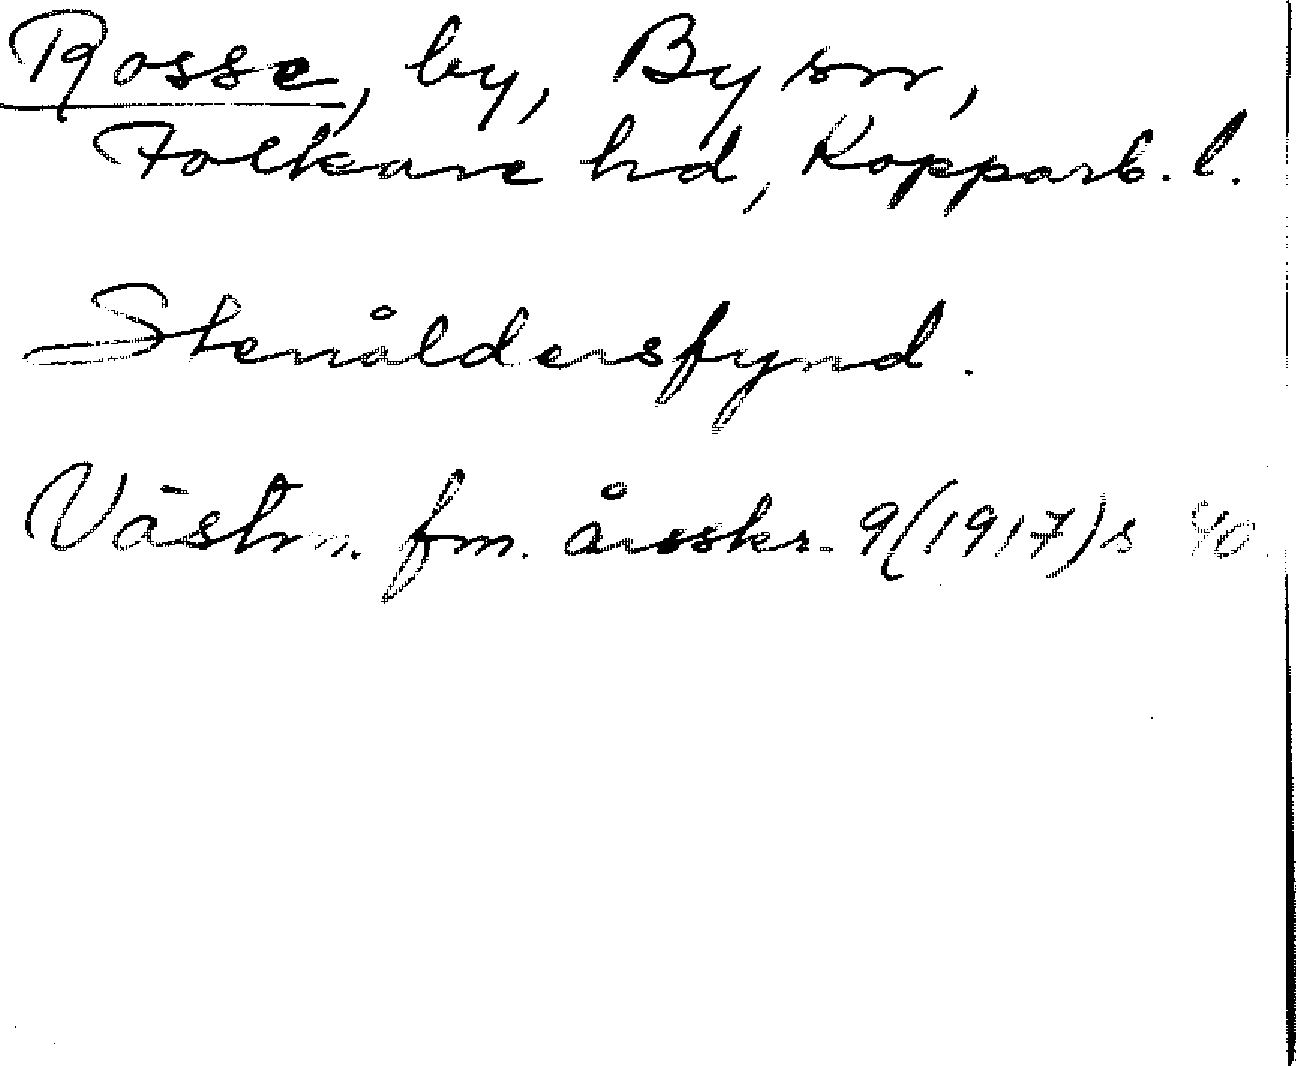 Rosse, by, By sn,
Folkare hd, Kopparb. l.
Stenåldersfynd.
Västm. fm. årsskr. 9(1917) s 40.